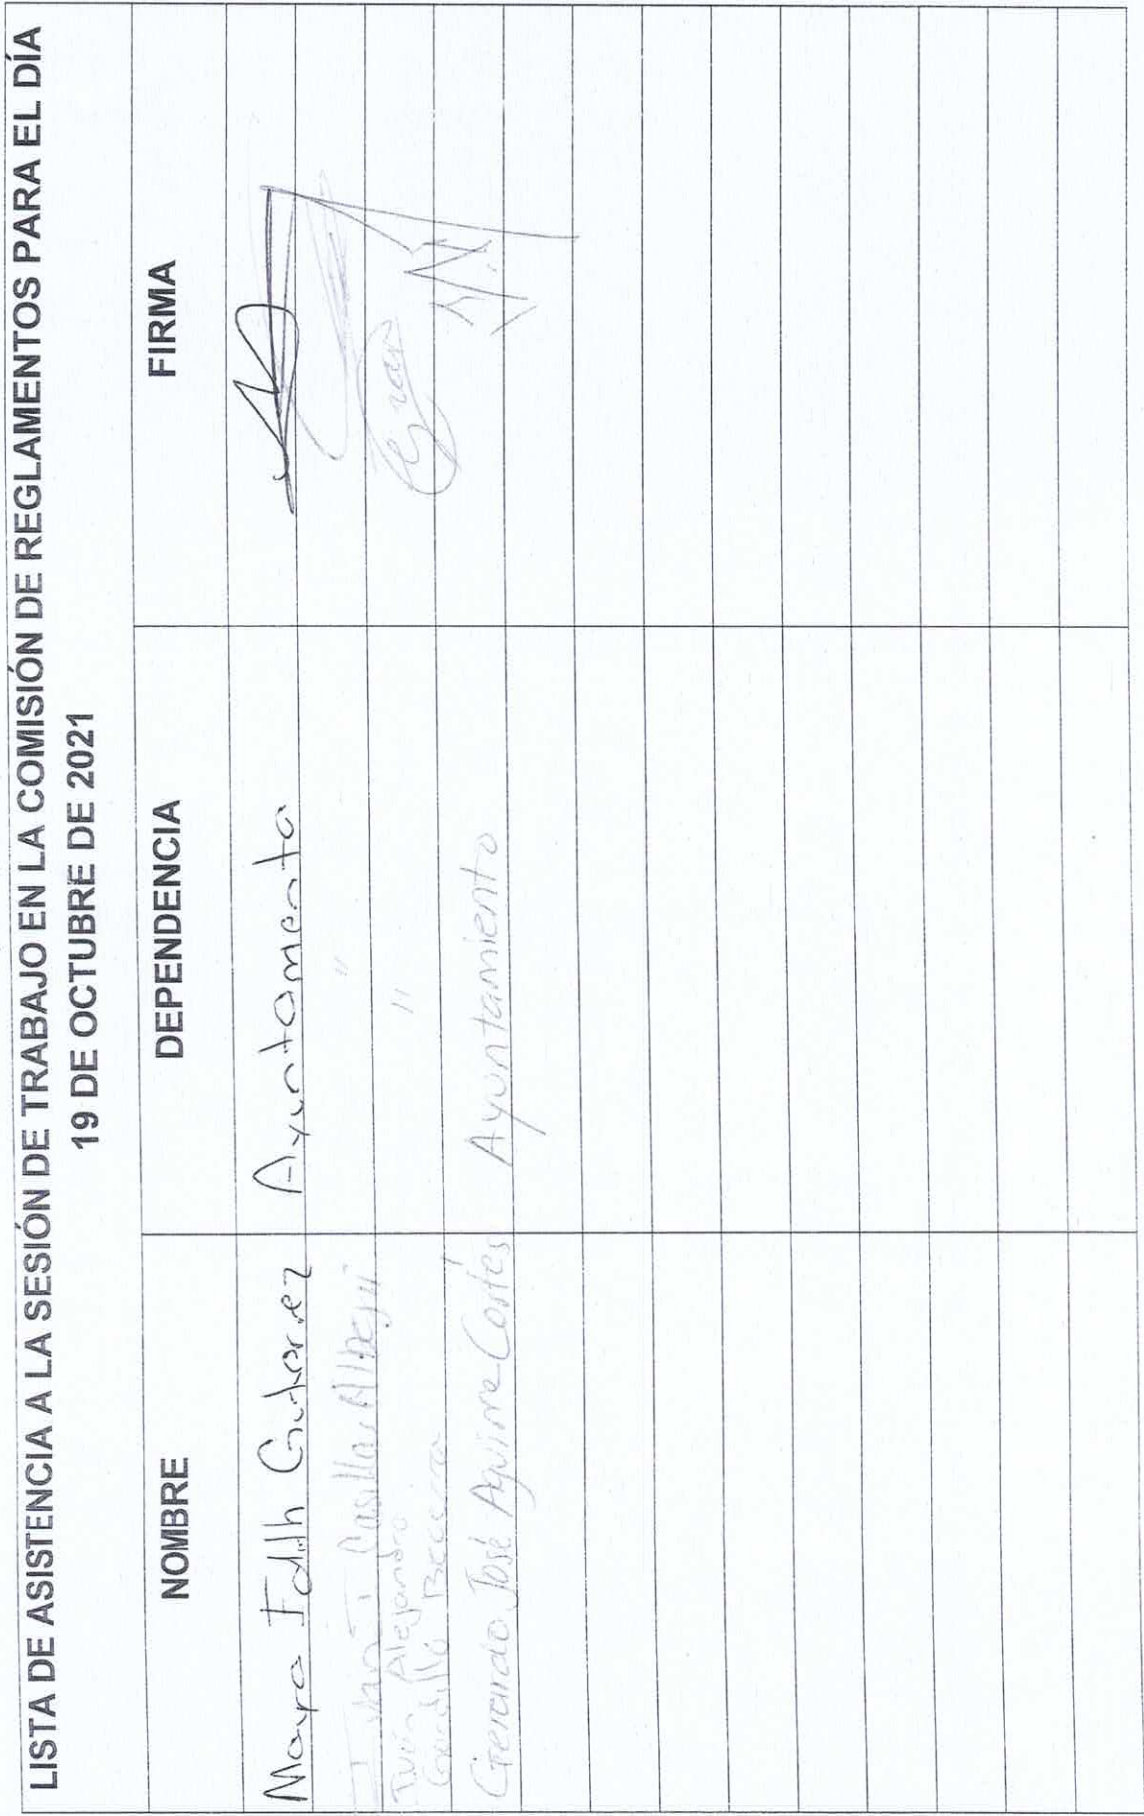 LISTA DE ASISTENCIA A LA SESIÓN DE TRABAJO EN LA COMISIÓN DE REGLAMENTOS PARA EL DÍA
19 DE OCTUBRE DE 2021
NOMBRE DEPENDENCIA FIRMA
Mayra Edith Gutierrez Ayuntamento
Casillas "
Iván Alejandro
Gordillo Becerra "
Gerardo José Aguirre Cortés Ayuntamiento